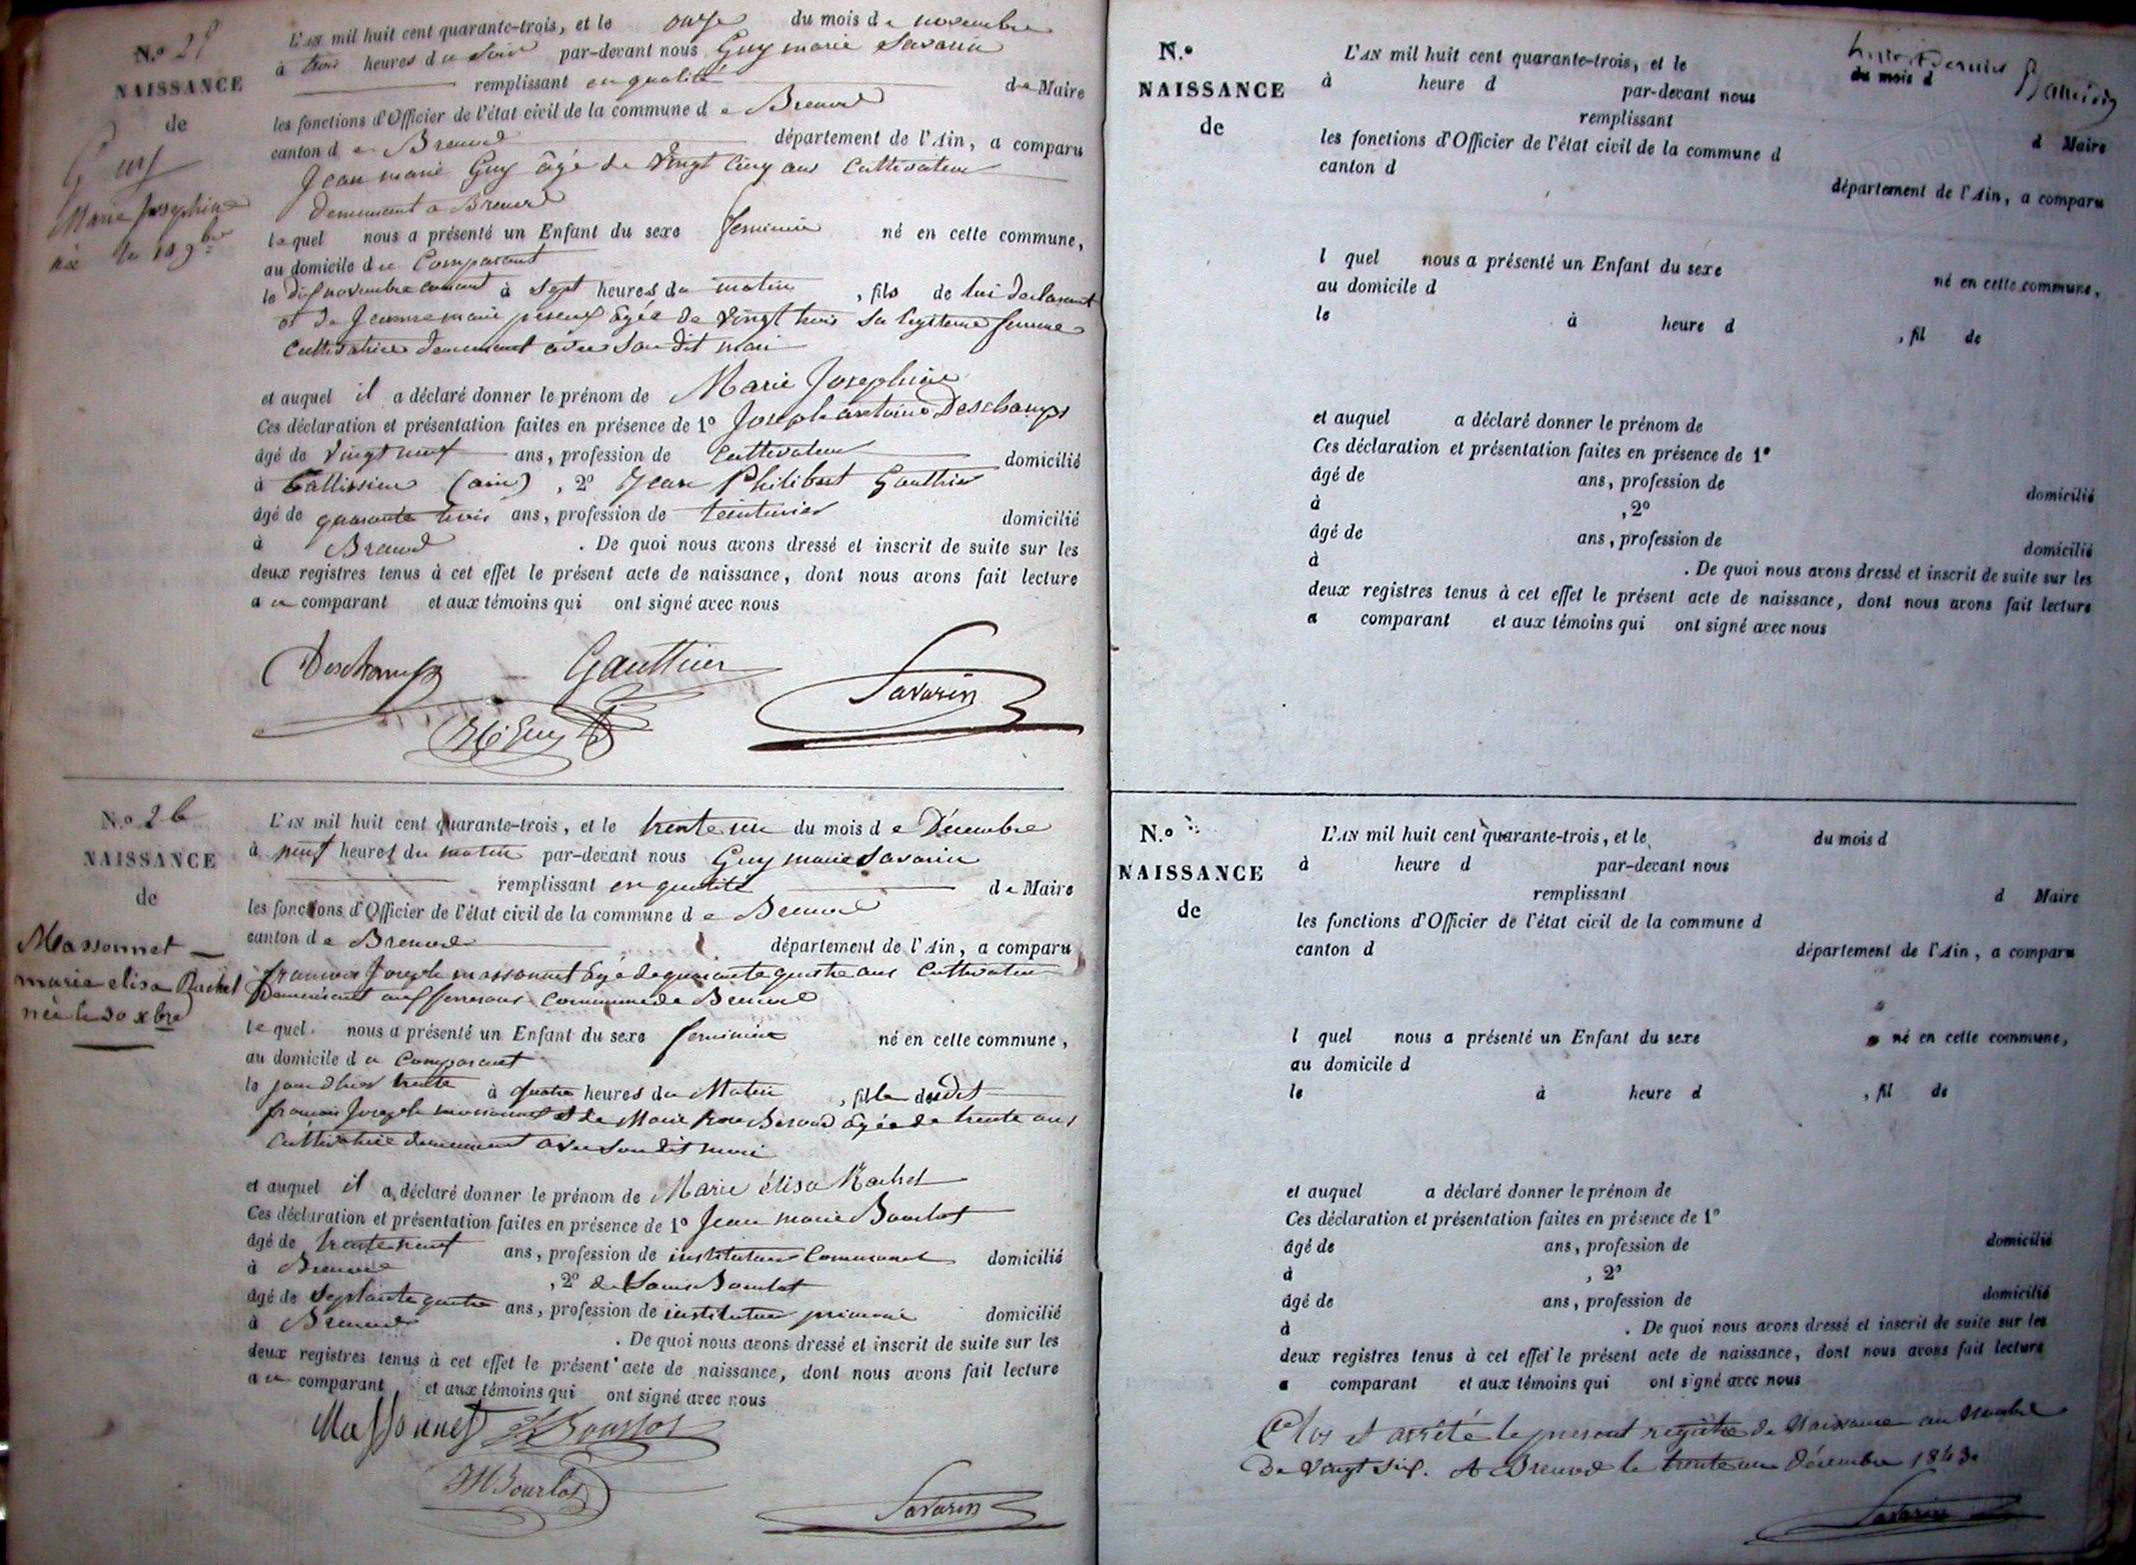 N.º 25
NAISSANCE
de
Guy
Marie Josephine
née le 10 9bre
L'AN mil huit cent quarante-trois, et le onze du mois de novembre
à trois heures du soir par-devant nous Guy marie Savarin
remplissant en qualité de Maire
les fonctions d'Officier de l'état civil de la commune de Brenod
canton de Brenod département de l'Ain, a comparu
Jean marie Guy âgé de vingt cinq ans cultivateur
demeurant a Brenod
lequel nous a présenté un Enfant du sexe feminin né en cette commune,
au domicile du Comparant
le dix novembre courant à sept heures du matin, fils de lui declarant
et de Jeanne marie âgée de vingt trois sa legitime femme
cultivatrice demeurant avec son dit mari
et auquel il a déclaré donner le prénom de Marie Josephine
Ces déclaration et présentation faites en présence de 1º Joseph antoine Deschamps
âgé de vingt neuf ans, profession de cultivateur domicilié
à (ain), 2º Jean Philibert Gauthier
âgé de quarante trois ans, profession de teinturier domicilié
à Brenod. De quoi nous avons dressé et inscrit de suite sur les
deux registres tenus à cet effet le présent acte de naissance, dont nous avons fait lecture
au comparant et aux témoins qui ont signé avec nous
Deschamps Gauthier Savarin
Guy
N.º 26
NAISSANCE
de
Massonnet
marie elisa Rachel
née le 30 xbre
L'AN mil huit cent quarante-trois, et le trente un du mois de Décembre
à neuf heures du matin par-devant nous Guy marie Savarin
remplissant en qualité de Maire
les fonctions d'Officier de l'état civil de la commune de Brenod
canton de Brenod département de l'Ain, a comparu
francois Joseph massonnet âgé de quarante quatre ans cultivateur
demeurant commune de Brenod
lequel nous a présenté un Enfant du sexe feminin né en cette commune,
au domicile du Comparant
le jour d'hier trente à quatre heures du Matin, fille dudit
francois Joseph massonnet et de Marie âgée de trente ans
cultivatrice demeurant avec son dit mari
et auquel il a déclaré donner le prénom de Marie élisa Rachel
Ces déclaration et présentation faites en présence de 1º Jean marie Bourlot
âgé de trente neuf ans, profession de instituteur communal domicilié
à Brenod, 2º Bourlot
âgé de septante quatre ans, profession de instituteur primaire domicilié
à Brenod. De quoi nous avons dressé et inscrit de suite sur les
deux registres tenus à cet effet le présent acte de naissance, dont nous avons fait lecture
au comparant et aux témoins qui ont signé avec nous
Massonnet Bourlot
JM Bourlot
Savarin
N.º
NAISSANCE
de
L'AN mil huit cent quarante-trois, et le du mois d
à heure d par-devant nous
remplissant d Maire
les fonctions d'Officier de l'état civil de la commune d
canton d département de l'Ain, a comparu
l quel nous a présenté un Enfant du sexe né en cette commune,
au domicile d
le à heure d , fil de
et auquel a déclaré donner le prénom de
Ces déclaration et présentation faites en présence de 1º
âgé de ans, profession de domicilié
à , 2º
âgé de ans, profession de domicilié
à . De quoi nous avons dressé et inscrit de suite sur les
deux registres tenus à cet effet le présent acte de naissance, dont nous avons fait lecture
a comparant et aux témoins qui ont signé avec nous
N.º
NAISSANCE
de
L'AN mil huit cent quarante-trois, et le du mois d
à heure d par-devant nous
remplissant d Maire
les fonctions d'Officier de l'état civil de la commune d
canton d département de l'Ain, a comparu
l quel nous a présenté un Enfant du sexe né en cette commune,
au domicile d
le à heure d , fil de
et auquel a déclaré donner le prénom de
Ces déclaration et présentation faites en présence de 1º
âgé de ans, profession de domicilié
à , 2º
âgé de ans, profession de domicilié
à . De quoi nous avons dressé et inscrit de suite sur les
deux registres tenus à cet effet le présent acte de naissance, dont nous avons fait lecture
a comparant et aux témoins qui ont signé avec nous
Clos et arrêté le present registre de Naissance au nombre
De vingt six. A Brenod le trente un décembre 1843.
Savarin